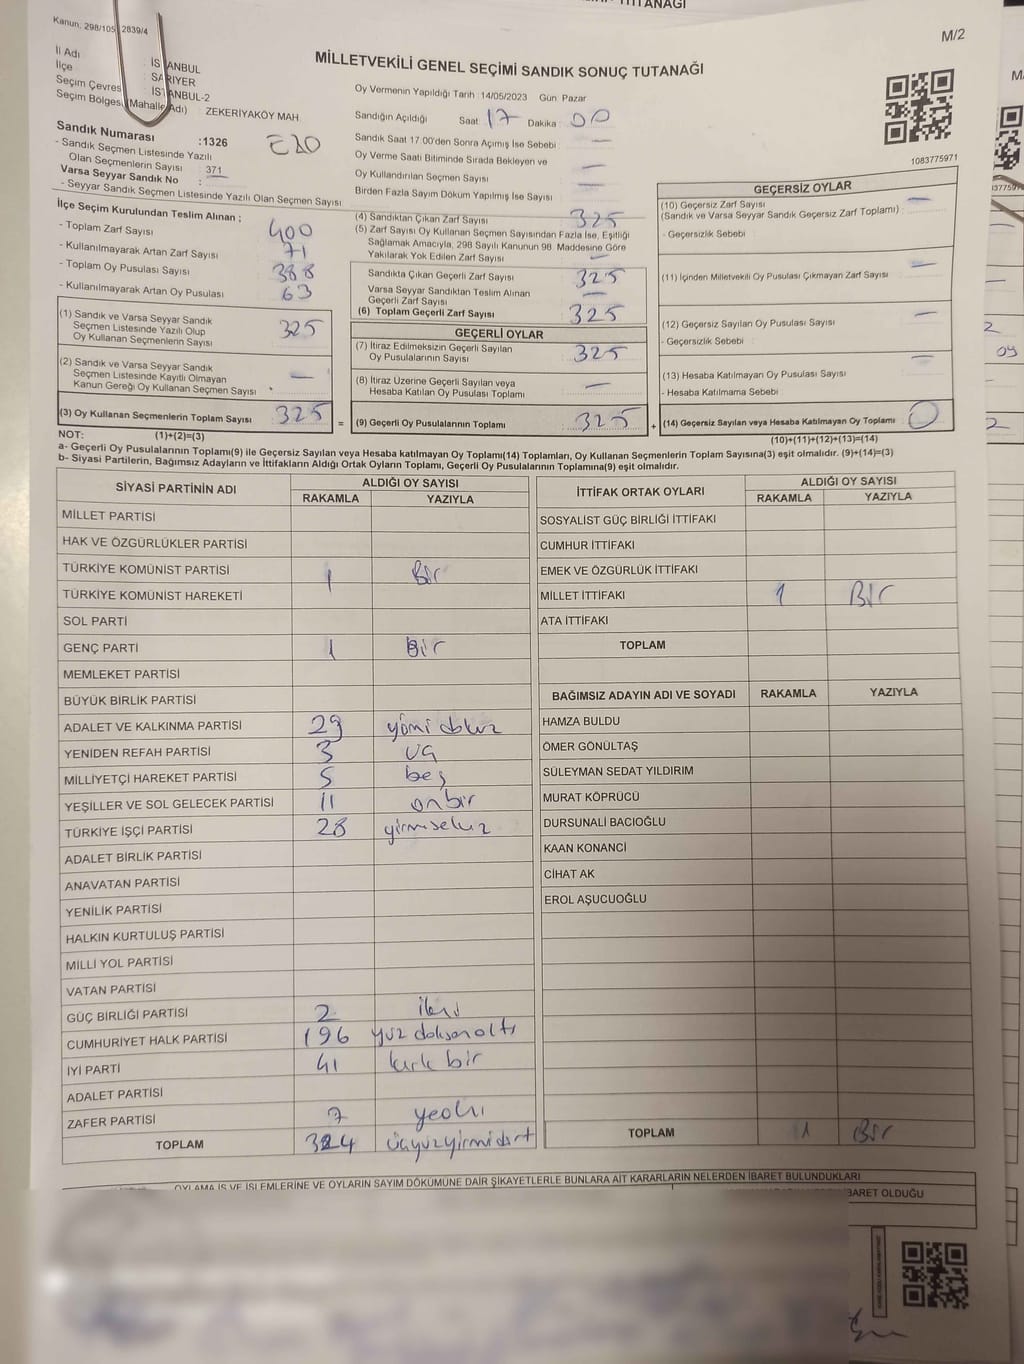 TUTANAĞI
Kanun: 298/105 2839/4
M/2
MİLLETVEKİLİ GENEL SEÇİMİ SANDIK SONUÇ TUTANAĞI
İl Adı : İSTANBUL
İlçe : SARIYER
Seçim Çevres : İSTANBUL-2
Seçim Bölges (Mahalle Adı) : ZEKERİYAKÖY MAH.
Sandık Numarası :1326
- Sandık Seçmen Listesinde Yazılı
Olan Seçmenlerin Sayısı : 371
Varsa Seyyar Sandık No :
- Seyyar Sandık Seçmen Listesinde Yazılı Olan Seçmen Sayısı
Oy Vermenin Yapıldığı Tarih :14/05/2023 Gün :Pazar
Sandığın Açıldığı Saat : 17 Dakika : 00
Sandık Saat 17:00'den Sonra Açımış İse Sebebi : —
Oy Verme Saati Bitiminde Sırada Bekleyen ve
Oy Kullandırılan Seçmen Sayısı : —
Birden Fazla Sayım Döküm Yapılmış İse Sayısı : —
1083775971
İlçe Seçim Kurulundan Teslim Alınan ;
- Toplam Zarf Sayısı : 400
- Kullanılmayarak Artan Zarf Sayısı : 71
- Toplam Oy Pusulası Sayısı : 388
- Kullanılmayarak Artan Oy Pusulası : 63
(1) Sandık ve Varsa Seyyar Sandık
Seçmen Listesinde Yazılı Olup
Oy Kullanan Seçmenlerin Sayısı : 325
(2) Sandık ve Varsa Seyyar Sandık
Seçmen Listesinde Kayıtlı Olmayan
Kanun Gereği Oy Kullanan Seçmen Sayısı : —
(3) Oy Kullanan Seçmenlerin Toplam Sayısı : 325
(4) Sandıktan Çıkan Zarf Sayısı : 325
(5) Zarf Sayısı Oy Kullanan Seçmen Sayısından Fazla İse, Eşitliği
Sağlamak Amacıyla, 298 Sayılı Kanunun 98. Maddesine Göre
Yakılarak Yok Edilen Zarf Sayısı : —
Sandıkta Çıkan Geçerli Zarf Sayısı : 325
Varsa Seyyar Sandıktan Teslim Alınan
Geçerli Zarf Sayısı : —
(6) Toplam Geçerli Zarf Sayısı : 325
GEÇERLİ OYLAR
(7) İtiraz Edilmeksizin Geçerli Sayılan
Oy Pusulalarının Sayısı : 325
(8) İtiraz Üzerine Geçerli Sayılan veya
Hesaba Katılan Oy Pusulası Toplamı : —
= (9) Geçerli Oy Pusulalarının Toplamı : 325
GEÇERSİZ OYLAR
(10) Geçersiz Zarf Sayısı
(Sandık ve Varsa Seyyar Sandık Geçersiz Zarf Toplamı) : —
- Geçersizlik Sebebi :
(11) İçinden Milletvekili Oy Pusulası Çıkmayan Zarf Sayısı : —
(12) Geçersiz Sayılan Oy Pusulası Sayısı : —
- Geçersizlik Sebebi :
(13) Hesaba Katılmayan Oy Pusulası Sayısı : —
- Hesaba Katılmama Sebebi :
+ (14) Geçersiz Sayılan veya Hesaba Katılmayan Oy Toplamı : 0
NOT: (1)+(2)=(3)
(10)+(11)+(12)+(13)=(14)
a- Geçerli Oy Pusulalarının Toplamı(9) ile Geçersiz Sayılan veya Hesaba katılmayan Oy Toplamı(14) Toplamları, Oy Kullanan Seçmenlerin Toplam Sayısına(3) eşit olmalıdır. (9)+(14)=(3)
b- Siyasi Partilerin, Bağımsız Adayların ve İttifakların Aldığı Ortak Oyların Toplamı, Geçerli Oy Pusulalarının Toplamına(9) eşit olmalıdır.
SİYASİ PARTİNİN ADI ALDIĞI OY SAYISI
RAKAMLA YAZIYLA
MİLLET PARTİSİ
HAK VE ÖZGÜRLÜKLER PARTİSİ
TÜRKİYE KOMÜNİST PARTİSİ 1 Bir
TÜRKİYE KOMÜNİST HAREKETİ
SOL PARTİ
GENÇ PARTİ 1 Bir
MEMLEKET PARTİSİ
BÜYÜK BİRLİK PARTİSİ
ADALET VE KALKINMA PARTİSİ 29 yirmi dokuz
YENİDEN REFAH PARTİSİ 3 üç
MİLLİYETÇİ HAREKET PARTİSİ 5 beş
YEŞİLLER VE SOL GELECEK PARTİSİ 11 onbir
TÜRKİYE İŞÇİ PARTİSİ 28 yirmisekiz
ADALET BİRLİK PARTİSİ
ANAVATAN PARTİSİ
YENİLİK PARTİSİ
HALKIN KURTULUŞ PARTİSİ
MİLLİ YOL PARTİSİ
VATAN PARTİSİ
GÜÇ BİRLİĞİ PARTİSİ 2 iki
CUMHURİYET HALK PARTİSİ 196 yüz doksan altı
İYİ PARTİ 41 kırk bir
ADALET PARTİSİ
ZAFER PARTİSİ 7 yedi
TOPLAM 324 üçyüzyirmidört
İTTİFAK ORTAK OYLARI ALDIĞI OY SAYISI
RAKAMLA YAZIYLA
SOSYALİST GÜÇ BİRLİĞİ İTTİFAKI
CUMHUR İTTİFAKI
EMEK VE ÖZGÜRLÜK İTTİFAKI
MİLLET İTTİFAKI 1 Bir
ATA İTTİFAKI
TOPLAM
BAĞIMSIZ ADAYIN ADI VE SOYADI RAKAMLA YAZIYLA
HAMZA BULDU
ÖMER GÖNÜLTAŞ
SÜLEYMAN SEDAT YILDIRIM
MURAT KÖPRÜCÜ
DURSUNALİ BACIOĞLU
KAAN KONANCİ
CİHAT AK
EROL AŞUCUOĞLU
TOPLAM 1 Bir
OYLAMA İŞ VE İŞLEMLERİNE VE OYLARIN SAYIM DÖKÜMÜNE DAİR ŞİKAYETLERLE BUNLARA AİT KARARLARIN NELERDEN İBARET BULUNDUKLARI
BARET OLDUĞU